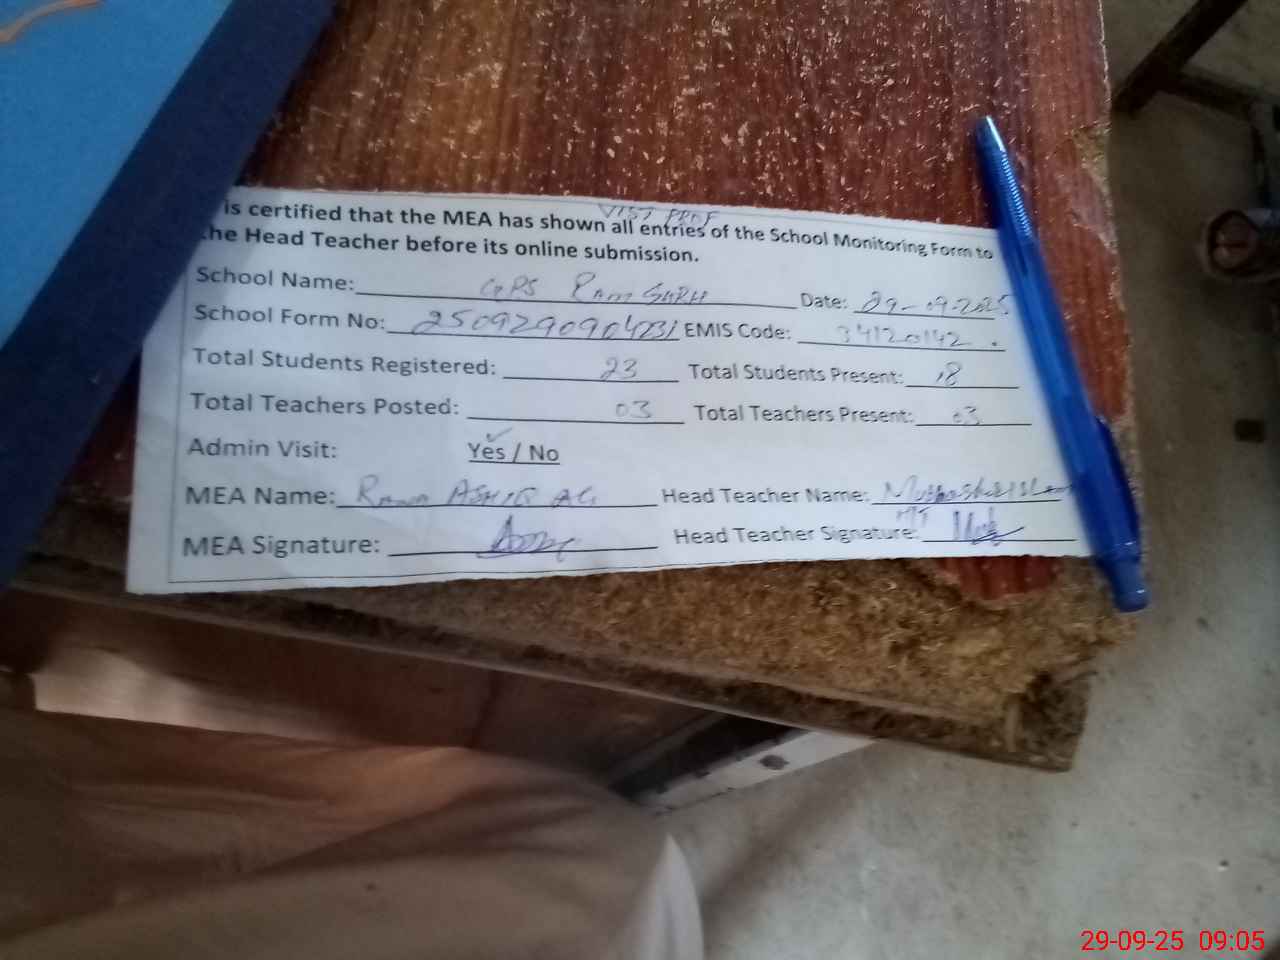 VIST PROF
is certified that the MEA has shown all entries of the School Monitoring Form to
the Head Teacher before its online submission.
School Name: GPS Ram Garh Date: 29-09-2025
School Form No: EMIS Code: 34120142
Total Students Registered: 23 Total Students Present: 18
Total Teachers Posted: 03 Total Teachers Present: 03
Admin Visit: Yes / No
MEA Name: ASHIQ Head Teacher Name:
MEA Signature: Head Teacher Signature:
29-09-25 09:05